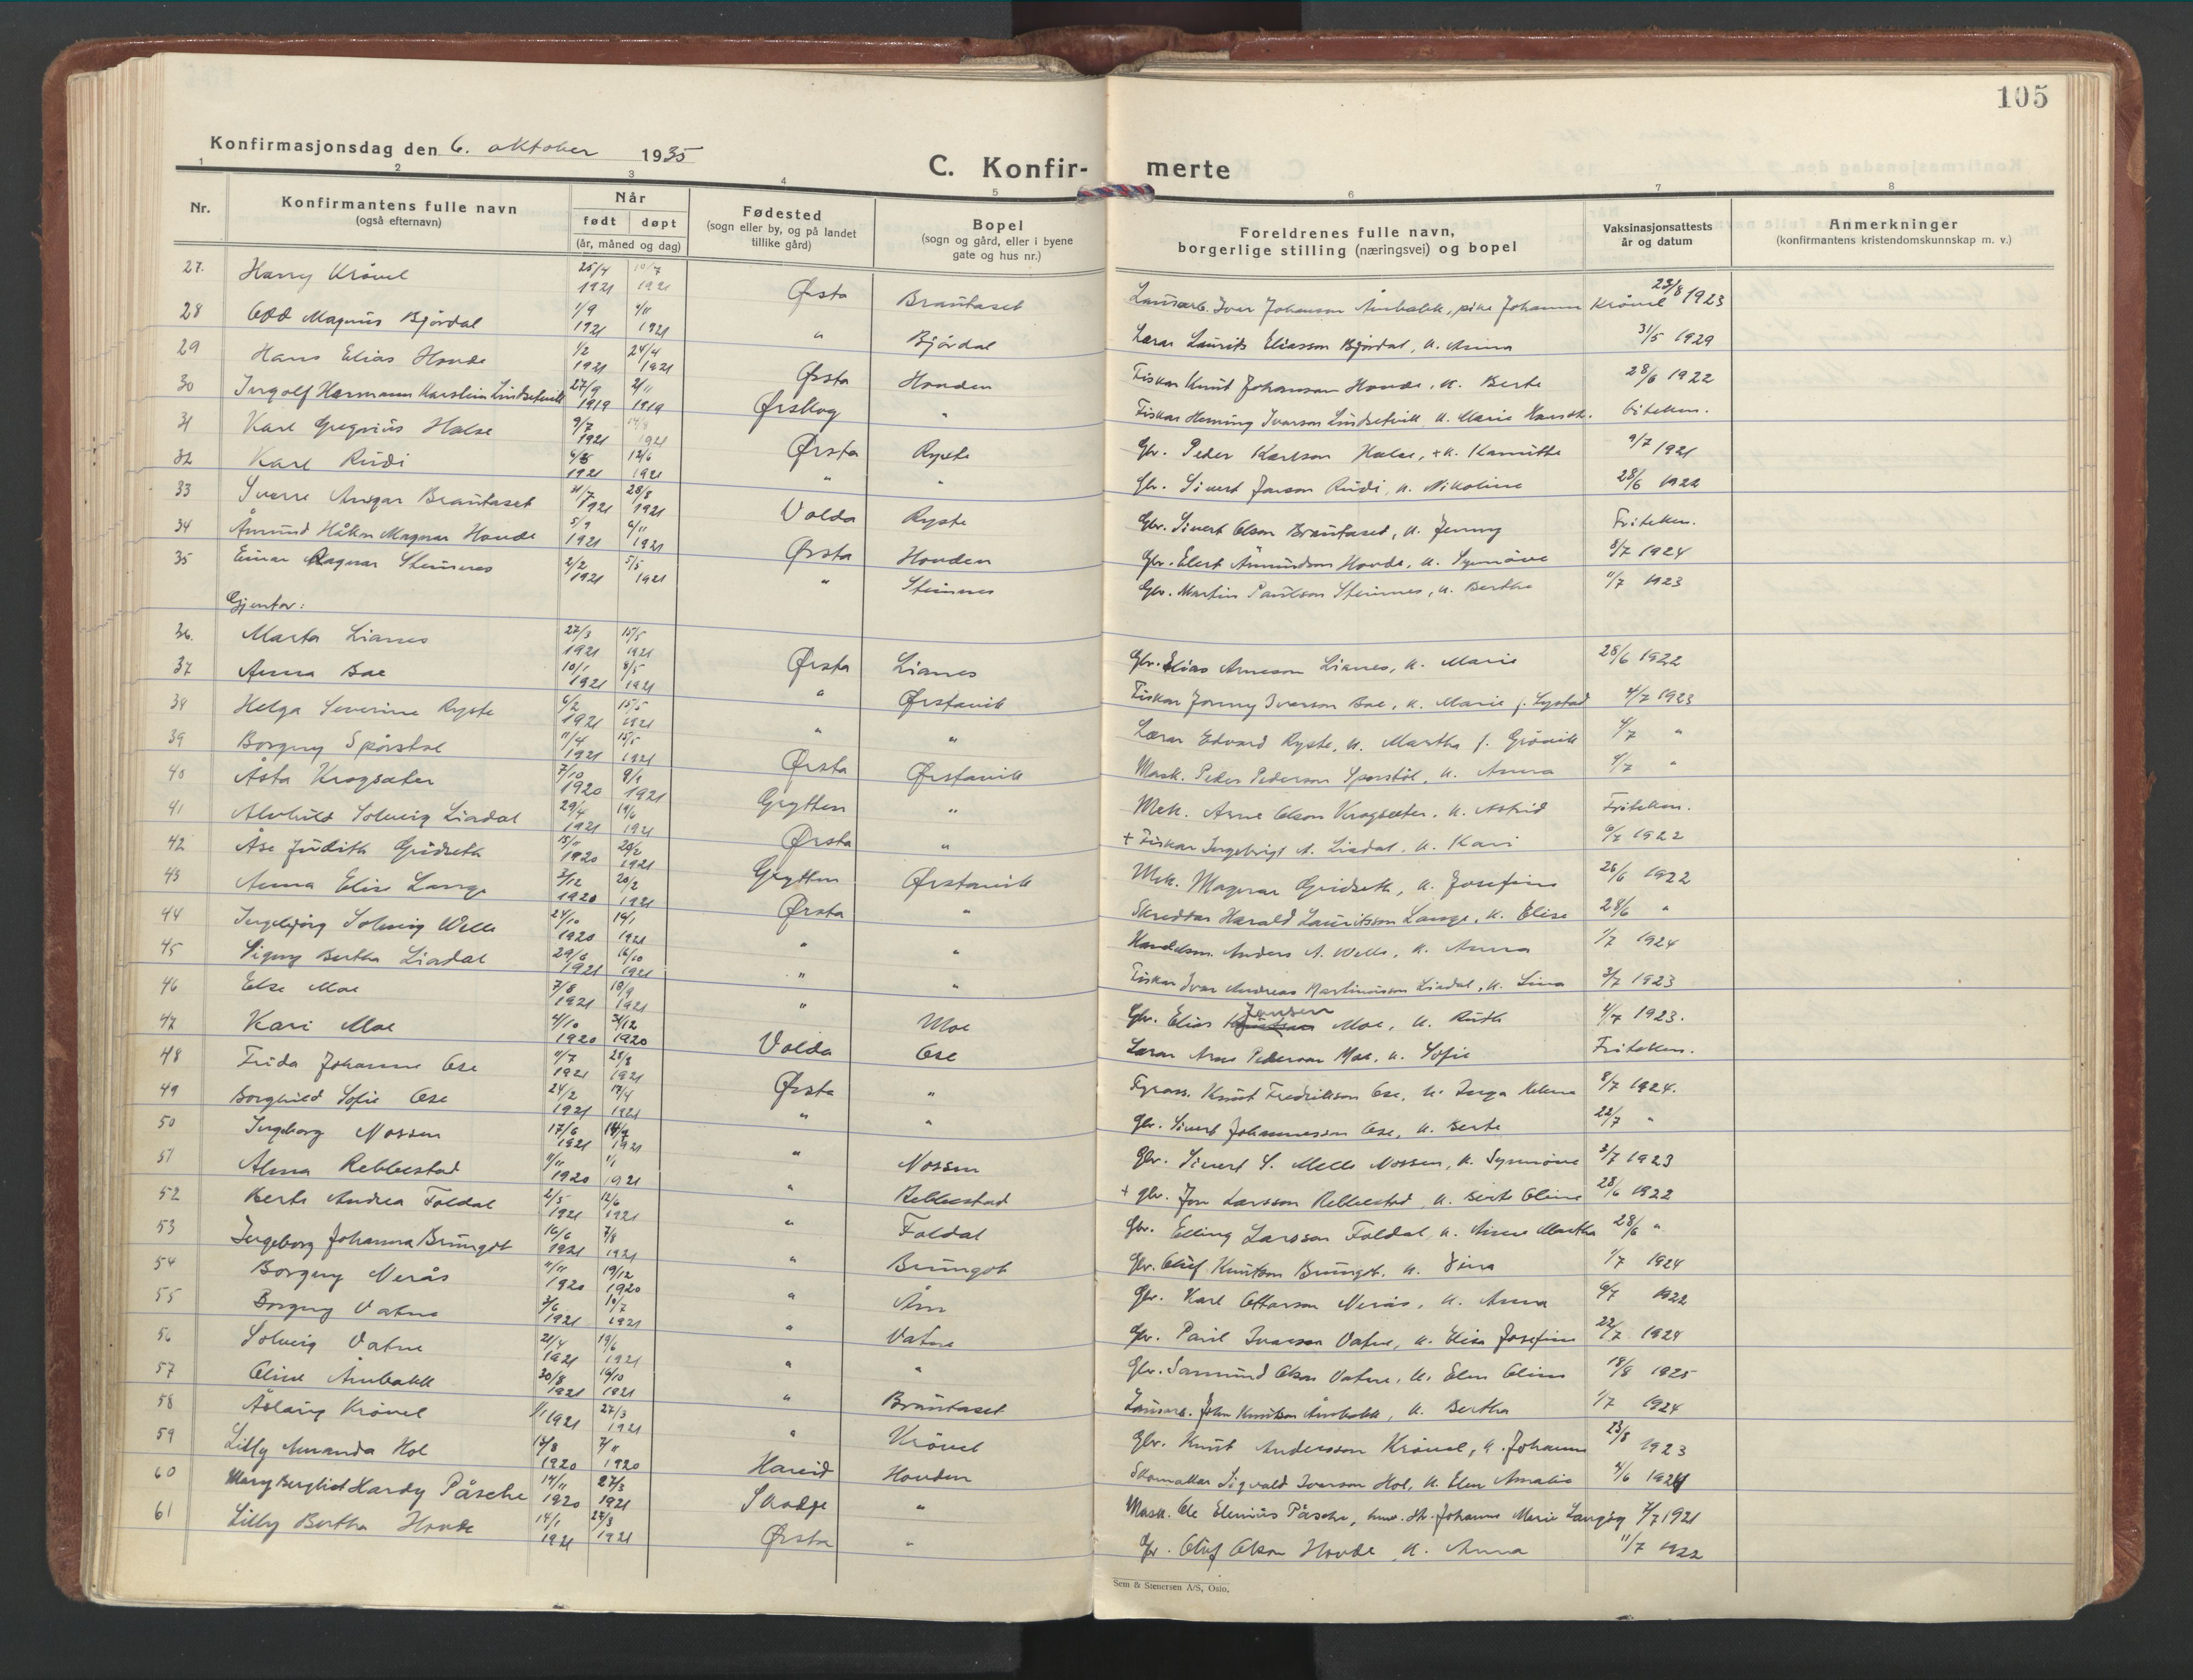 105
Konfirmasjonsdag den 6. oktober 1935
C. Konfir- merte
1 2 3 4 5 6 7 8
Nr.
Konfirmantens fulle navn
(også efternavn)
Når
født døpt
(år, måned og dag)
Fødested
(sogn eller by, og på landet
tillike gård)
Bopel
(sogn og gård, eller i byene
gate og hus nr.)
Foreldrenes fulle navn,
borgerlige stilling (næringsvei) og bopel
Vaksinasjonsattests
år og datum
Anmerkninger
(konfirmantens kristendomskunnskap m. v.)
27. Harry Krøvel 25/4 1921 10/7 1921 Ørsta Brautaset Ivar Johanson Åmbakk, pike Johanna Krøvel 23/8 1923
28 Odd Magnus Bjørdal 1/9 1921 4/11 1921 " Bjørdal Lærar Laurits Eliasson Bjørdal, k. Anna 31/5 1929
29 Hans Elias Hovde 1/2 1921 24/4 1921 Ørsta Hovden Fiskar Knut Johanson Hovde, k. Berte 28/6 1922
30 Ingolf Hermann Karstein Lindsetvik 27/9 1919 2/11 1919 Ørskog " Fiskar Heming Ivarson Lindsetvik k. Marie
31 Karl Gregorius Halse 9/7 1921 14/8 1921 Ørsta Ryste Gbr. Peder Karlson Halse, + k. Kamitte 9/7 1921
32 Karl Rudi 4/5 1921 12/6 1921 " " Gbr. Sivert Jonson Rudi, k. Nikoline 28/6 1922
33 Sverre Ansgar Brautaset 21/7 1921 28/8 1921 Volda Ryste Gbr. Sivert Olson Brautaset, k. Jenny Friteken.
34 Åmund Håkon Magnar Hovde 5/9 1921 6/11 1921 Ørsta Hovden Gbr. Elert Åmundson Hovde, k. Synnøve 8/7 1924
35 Einar Ragnar Steinnes 2/2 1921 5/5 1921 " Steinnes Gbr. Martin Paulson Steinnes, k. Berthe 11/7 1923
Gjentor:
36. Marta Lianes 27/3 1921 15/5 1921 Ørsta Lianes Gbr. Elias Arneson Lianes, k. Marie 28/6 1922
37 Anna Boe 10/1 1921 8/5 1921 " Ørstavik Fiskar Jonny Ivarson Boe, k. Marie f. Systad 4/7 1923
38 Helga Severine Ryste 6/2 1921 15/5 1921 " " Lærar Edvard Ryste, k. Martha f. Grøvik 4/7 "
39 Borgny Sporstøl 11/4 1921 15/5 1921 Ørsta Ørstavik Mask. Peder Pederson Sporstøl, k. Anna 4/7 "
40 Åsta Krogsæter 7/10 1920 9/1 1921 Grytten " Mek. Arne Olson Krogsæter, k. Astrid Friteken.
41 Alvhild Solveig Liadal 29/4 1921 19/6 1921 Ørsta " + Fiskar Ingebrigt A. Liadal, k. Kari 6/7 1922
42 Åse Judith Gridseth 15/11 1920 20/2 1921 Grytten Ørstavik Mek. Magnar Gridseth, k. Josefine 26/6 1922
43 Anna Elise Lange 3/12 1920 20/2 1921 Ørsta " Skreddar Harald Lauritsson Lange, k. Elise 28/6 "
44 Ingebjørg Solveig Welle 24/10 1920 16/1 1921 " " Handelsm. Anders A. Welle, k. Anna 1/7 1924
45 Signy Bertha Liadal 29/6 1921 16/10 1921 " " Fiskar Ivar Andreas Martinusson Liadal, k. Lina 3/7 1923
46 Else Moe 7/8 1921 18/9 1921 " Moe Gbr. Elias Jensen Moe, k. Ruth 4/7 1923.
47 Kari Moe 4/10 1920 31/12 1920 Volda Ose Lærar Arne Pederson Moe, k. Sofie Friteken.
48 Frida Johanne Ose 11/7 1921 28/8 1921 Ørsta " Fyrass. Knut Fredrikson Ose, k. Inga Helene 8/7 1924.
49 Borghild Sofie Ose 24/2 1921 17/4 1921 " " Gbr. Sivert Johannesson Ose, k. Berte 22/7 "
50 Ingeborg Nossen 17/6 1921 14/9 1921 " Nossen Gbr. Sivert S. Melle Nossen, k. Synnøve 3/7 1923
51 Alma Rebbestad 11/11 1920 1/1 1921 " Rebbestad + gbr. Jon Larsson Rebbestad, k. Berte Oline 28/6 1922
52 Berte Andrea Foldal 2/5 1921 12/6 1921 " Foldal Gbr. Elling Larsson Foldal, k. Anne Martha 28/6 "
53 Ingeborg Johanna Brungot 16/6 1921 7/8 1921 " Brungot Gbr. Oluf Knutson Brungot, k. Sina 1/7 1924
54 Borgny Nerås 11/11 1920 19/12 1920 " Åm Gbr. Karl Ottarson Nerås, k. Anna 6/7 1922
55 Borgny Vatne 3/6 1921 10/7 1921 " Vatne Gbr. Paul Ivarson Vatne, k. Elisa Josefine 22/7 1924
56 Solveig Vatne 21/4 1921 19/6 1921 " " Gbr. Samund Olson Vatne, k. Elen Oline 18/8 1925
57 Oline Åmbakk 20/8 1921 16/10 1921 " Brautaset John Knutson Åmbakk, k. Bertha 1/7 1924
58 Åslaug Krøvel 1/1 1921 27/3 1921 " Krøvel Gbr. Knut Andersson Krøvel, k. Johanne 23/8 1923
59 Lilly Amanda Hol 15/8 1920 7/11 1920 Hareid Hovden Skomakar Sigvald Ivarson Hol, k. Elen Amalie 4/6 1924
60 Mary Bergliot Hardy Påsche 14/11 1920 27/3 1921 Skodje " Mask. Ole Elenius Påsche, Johanne Marie Langøy 7/7 1921
61 Lilly Bertha Hovde 14/1 1921 27/3 1921 Ørsta " Gbr. Oluf Olson Hovde, k. Anna 11/7 1922
Sem & Stenersen A/S, Oslo.